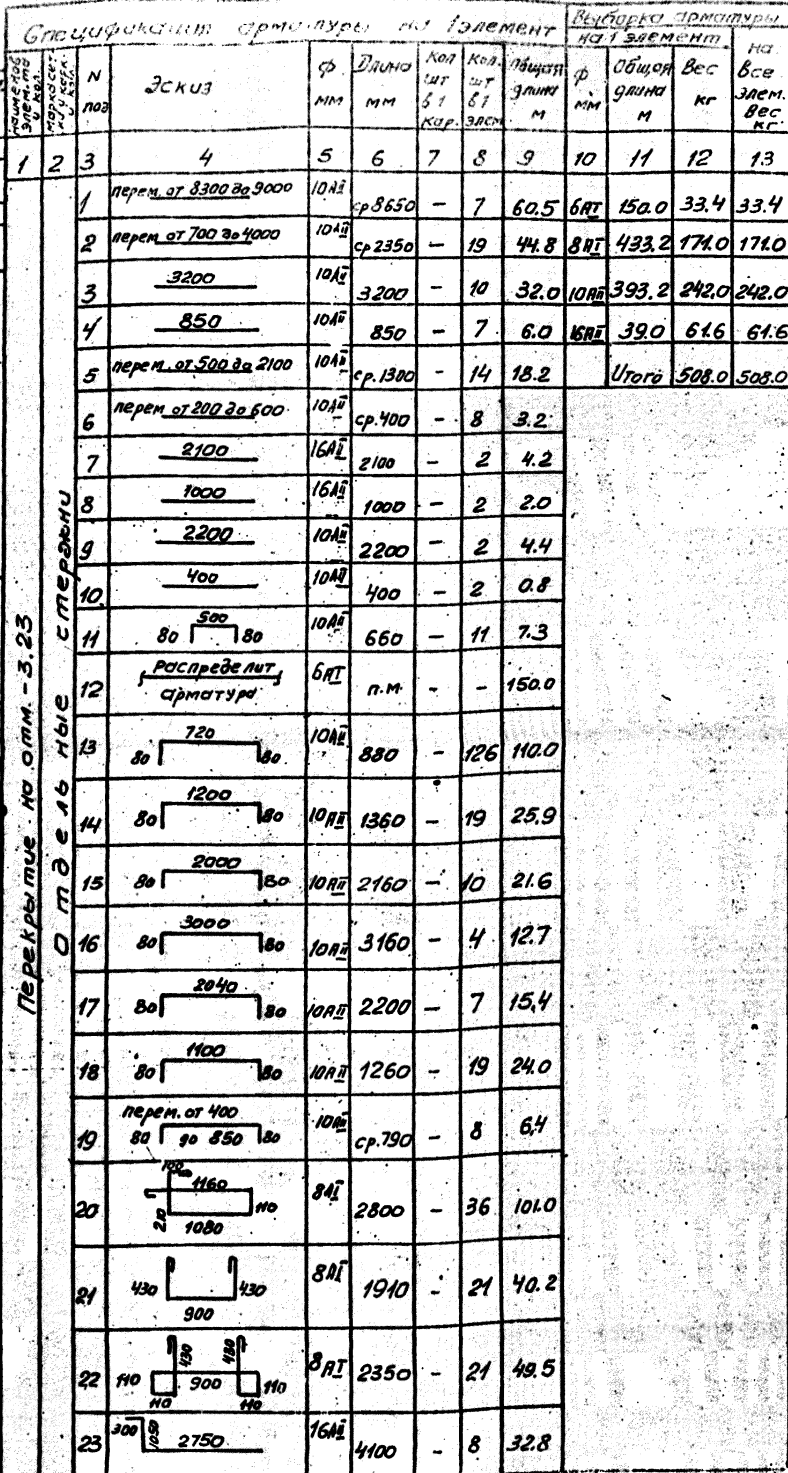 Спецификация арматуры на 1 элемент
Выборка арматуры
на 1 элемент
на все элем. Вес кг.
наименов. элем.та и кол.
N поз Эскиз ф мм Длина мм Кол шт в 1 кар. Кол. шт в 1 элем Общая длина м ф мм Общая длина м Вес кг
1 2 3 4 5 6 7 8 9 10 11 12 13
Перекрытие на отм. -3.23
Отдельные стержни
1 перем. от 8300 до 9000 10АII ср 8650 - 7 60.5 6АI 150.0 33.4 33.4
2 перем. от 700 до 4000 10АII ср 2350 - 19 44.8 8АI 433.2 171.0 171.0
3 3200 10АII 3200 - 10 32.0 10АII 393.2 242.0 242.0
4 850 10АII 850 - 7 6.0 16АII 39.0 61.6 61.6
5 перем. от 500 до 2100 10АII ср. 1300 - 14 18.2 Итого 508.0 508.0
6 перем. от 200 до 600 10АII ср. 400 - 8 3.2
7 2100 16АII 2100 - 2 4.2
8 1000 16АII 1000 - 2 2.0
9 2200 10АII 2200 - 2 4.4
10 400 10АII 400 - 2 0.8
11 80 500 80 10АII 660 - 11 7.3
12 Распределит арматура 6АI п.м. - - 150.0
13 80 720 80 10АII 880 - 126 110.0
14 80 1200 80 10АII 1360 - 19 25.9
15 80 2000 80 10АII 2160 - 10 21.6
16 80 3000 80 10АII 3160 - 4 12.7
17 80 2040 80 10АII 2200 - 7 15,4
18 80 1100 80 10АII 1260 - 19 24.0
19 перем. от 400 до 850 80 80 10АII ср. 790 - 8 6,4
20 100 1160 210 1080 110 8АI 2800 - 36 101.0
21 430 900 430 8АI 1910 - 21 40.2
22 110 110 430 900 430 110 110 8АI 2350 - 21 49.5
23 300 1050 2750 16АII 4100 - 8 32.8